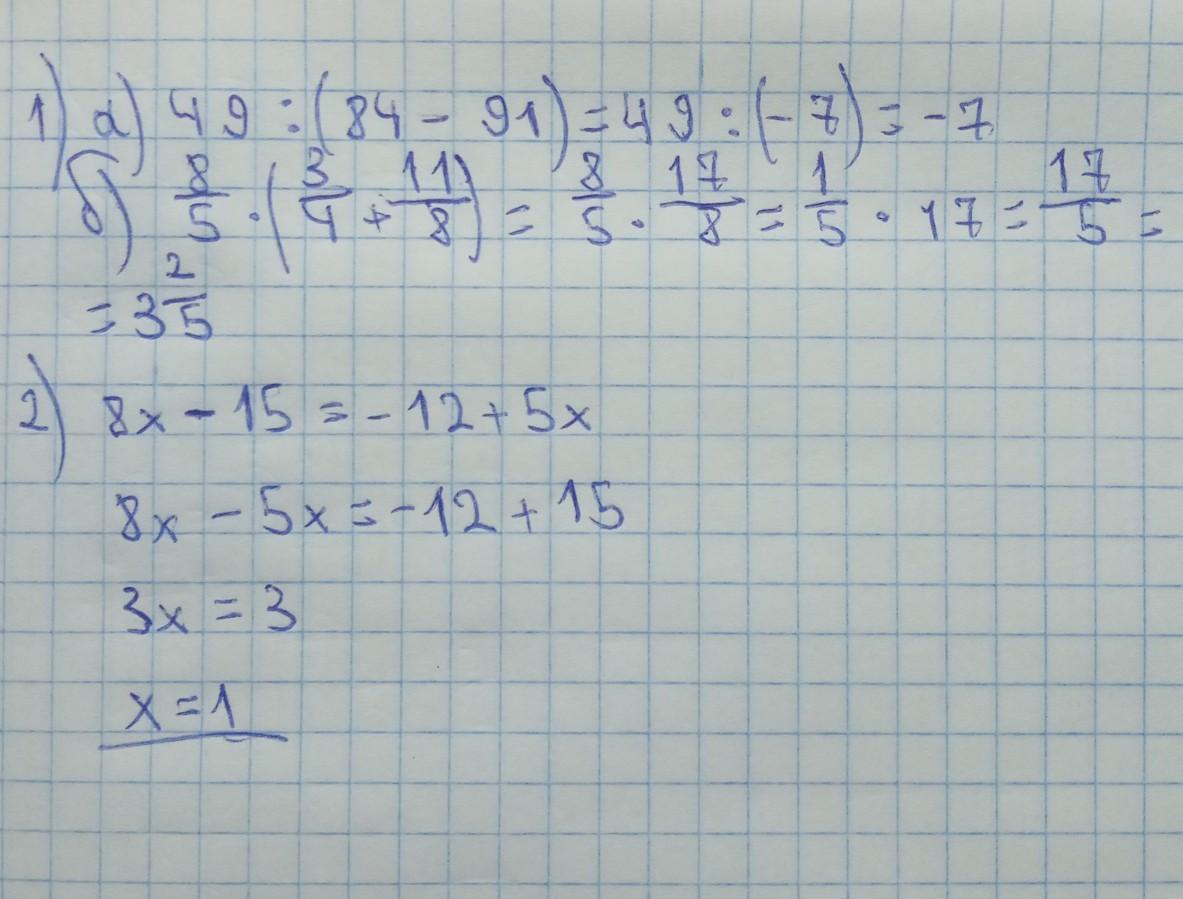 1) а) 49 : (84 - 91) = 49 : (-7) = -7
б) 8/5 · (3/4 + 11/8) = 8/5 · 17/8 = 1/5 · 17 = 17/5 =
= 3 2/5
2) 8x - 15 = -12 + 5x
8x - 5x = -12 + 15
3x = 3
x = 1